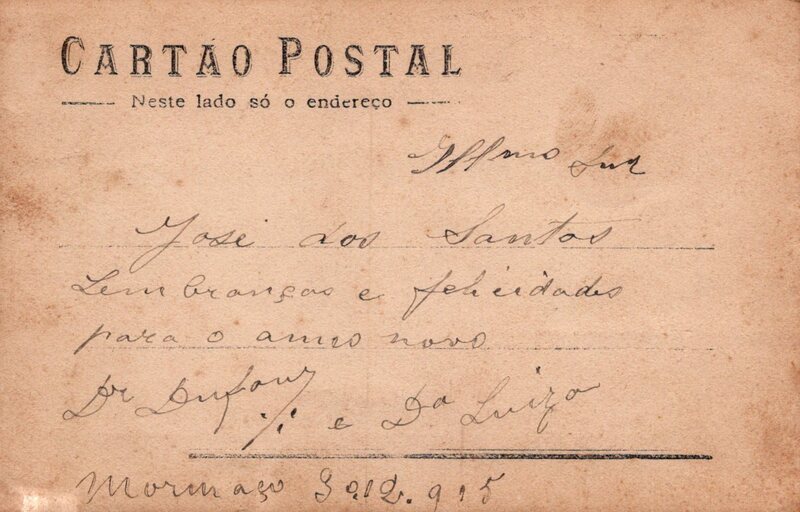 CARTÃO POSTAL
Neste lado só o endereço
Illmo Snr
José dos Santos
Lembranças e felicidades
para o anno novo
Dr Dufour
e Da Luiza
Mormaço 3 12. 915